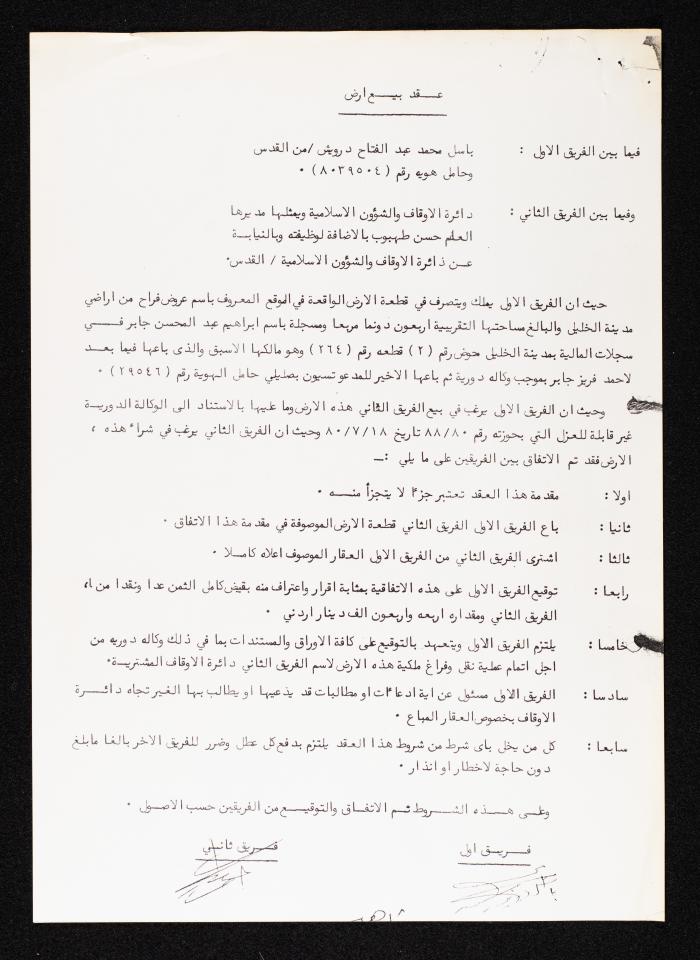 عقد بيع ارض
فيما بين الفريق الاول : باسل محمد عبد الفتاح درويش /من القدس
وحامل هويه رقم (٨٠٣٩٥٠٤) ٠
وفيما بين الفريق الثاني : دائرة الاوقاف والشؤون الاسلامية ويمثلها مديرها
العلم حسن طهبوب بالاضافة لوظيفته وبالنيابة
عن دائرة الاوقاف والشؤون الاسلامية / القدس٠
حيث ان الفريق الاول يملك ويتصرف في قطعة الارض الواقعة في الموقع المعروف باسم عروض فراح من اراضي
مدينة الخليل والبالغ مساحتها التقريبية اربعون دونما مربعا ومسجلة باسم ابراهيم عبد المحسن جابر فــي
سجلات المالية بمدينة الخليل حوض رقم (٢) قطعه رقم (٢٦٤) وهو مالكها الاسبق والذى باعها فيما بعد
لاحمد فريز جابر بموجب وكاله دورية ثم باعها الاخير للمدعو تسيون بصليلي حامل الهوية رقم (٢٩٥٤٦) ٠
وحيث ان الفريق الاول يرغب في بيع الفريق الثاني هذه الارض وما عليها بالاستناد الى الوكالة الدوريـة
غير قابلة للعزل التي بحوزته رقم ٨٨/٨٠ تاريخ ٨٠/٧/١٨ وحيث ان الفريق الثاني يرغب في شراء هذه ،
الارض فقد تم الاتفاق بين الفريقين على ما يلي :ــ
اولا : مقدمة هذا العقد تعتبر جزء لا يتجزأ منـــه ٠
ثانيا : باع الفريق الاول الفريق الثاني قطعة الارض الموصوفة في مقدمة هذا الاتفاق ٠
ثالثا : اشترى الفريق الثاني من الفريق الاول العقار الموصوف اعلاه كامـلا ٠
رابعا : توقيع الفريق الاول على هذه الاتفاقية بمثابة اقرار واعتراف منه بقبض كامل الثمن عدا ونقدا من
الفريق الثاني ومقداره اربعه واربعون الف دينار اردني ٠
خامسا : يلتزم الفريق الاول ويتعهد بالتوقيع على كافة الاوراق والمستندات بما في ذلك وكاله دوريه من
اجل اتمام عملية نقل وفراغ ملكية هذه الارض لاسم الفريق الثاني دائرة الاوقاف المشتريـة٠
سادسا : الفريق الاول مسئول عن اية ادعاءات او مطالبات قد يدعيها او يطالب بها الغير تجاه دائــرة
الاوقاف بخصوص العقار المباع ٠
سابعا : كل من يخل باى شرط من شروط هذا العقد يلتزم بدفع كل عطل وضرر للفريق الاخر بالغا ما بلغ
دون حاجة لاخطار او انذار ٠
وعلى هــذه الشــروط تــم الاتفــاق والتوقيــع من الفريقين حسب الاصول ٠
فريق اول فريق ثاني